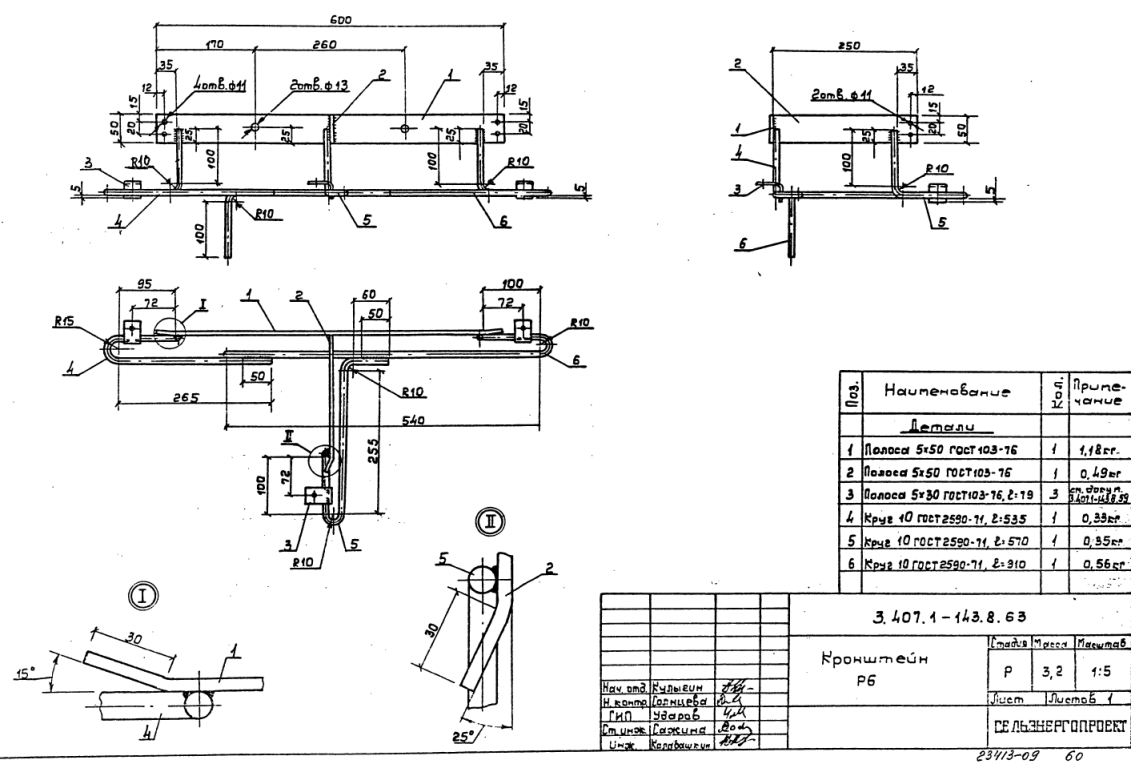 600
170
260
35
35
4отв.ф11
2отв.ф13
2
1
12
12
15
50
20
25
25
25
15
20
100
100
3
R10
R10
5
5
4
R10
5
6
100
250
2
35
12
2отв.ф11
15
20
50
1
25
4
100
R10
3
5
5
6
95
72
I
1
2
60
50
100
72
R15
R10
4
6
50
265
R10
540
II
255
100
72
3
5
R10
I
30
15°
1
4
II
5
2
30
25°
Поз. Наименование Кол. Приме-
чание
Детали
1 Полоса 5х50 ГОСТ103-76 1 1,18кг.
2 Полоса 5х50 ГОСТ103-76 1 0,49кг
3 Полоса 5х30 ГОСТ103-76, ℓ=79 3 см. докум. 3.407.1-143.8.59
4 Круг 10 ГОСТ2590-71, ℓ=535 1 0,33кг
5 Круг 10 ГОСТ2590-71, ℓ=570 1 0,35кг
6 Круг 10 ГОСТ2590-71, ℓ=910 1 0,56кг
3.407.1-143.8.63
Кронштейн
Р6
Стадия Масса Масштаб
Р 3,2 1:5
Лист Листов 1
СЕЛЬЭНЕРГОПРОЕКТ
Нач. отд. Кулыгин
Н. контр. Солнцева
ГИП Ударов
Ст. инж. Сажина
Инж.
23413-09 60